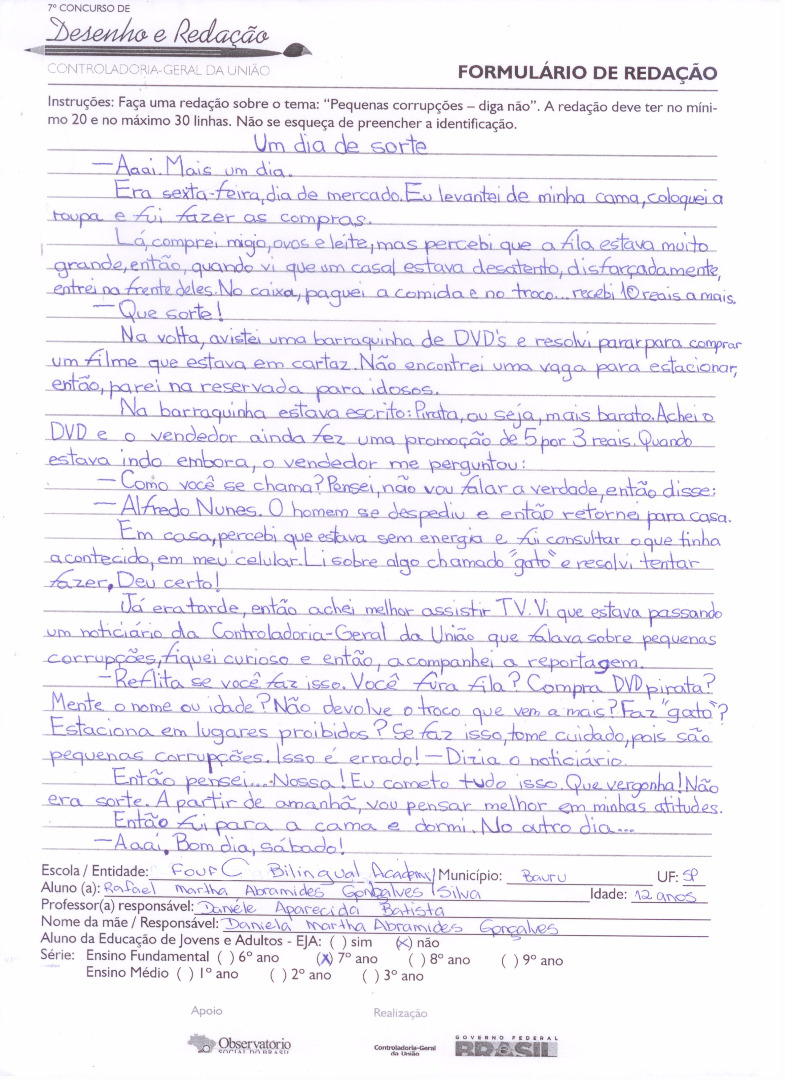 7º CONCURSO DE
Desenho e Redação
CONTROLADORIA-GERAL DA UNIÃO
FORMULÁRIO DE REDAÇÃO
Instruções: Faça uma redação sobre o tema: “Pequenas corrupções – diga não”. A redação deve ter no míni-
mo 20 e no máximo 30 linhas. Não se esqueça de preencher a identificação.
Um dia de sorte
— Aaai. Mais um dia.
Era sexta-feira, dia de mercado. Eu levantei de minha cama, coloquei a
roupa e fui fazer as compras.
Lá, comprei migio, ovos e leite, mas percebi que a fila estava muito
grande, então, quando vi que um casal estava desatento, disfarçadamente,
entrei na frente deles. No caixa, paguei a comida e no troco... recebi 10 reais a mais.
— Que sorte!
Na volta, avistei uma barraquinha de DVD's e resolvi parar para comprar
um filme que estava em cartaz. Não encontrei uma vaga para estacionar,
então, parei na reservada para idosos.
Na barraquinha estava escrito: Pirata, ou seja, mais barato. Achei o
DVD e o vendedor ainda fez uma promoção de 5 por 3 reais. Quando
estava indo embora, o vendedor me perguntou:
— Como você se chama? Pensei, não vou falar a verdade, então disse:
— Alfredo Nunes. O homem se despediu e então retornei para casa.
Em casa, percebi que estava sem energia e fui consultar o que tinha
acontecido, em meu celular. Li sobre algo chamado "gato" e resolvi tentar
fazer. Deu certo!
Já era tarde, então achei melhor assistir TV. Vi que estava passando
um noticiário da Controladoria-Geral da União que falava sobre pequenas
corrupções, fiquei curioso e então, acompanhei a reportagem.
— Reflita se você faz isso. Você fura fila? Compra DVD pirata?
Mente o nome ou idade? Não devolve o troco que vem a mais? Faz "gato"?
Estaciona em lugares proibidos? Se faz isso, tome cuidado, pois são
pequenas corrupções. Isso é errado! — Dizia o noticiário.
Então pensei... - Nossa! Eu cometo tudo isso. Que vergonha! Não
era sorte. A partir de amanhã, vou pensar melhor em minhas atitudes.
Então fui para a cama e dormi. No outro dia...
— Aaai, Bom dia, sábado!
Escola / Entidade: Four C Bilingual Academy Município: Bauru UF: SP
Aluno (a): Rafael Martha Abramides Gonçalves Silva Idade: 12 anos
Professor(a) responsável: Daniéle Aparecida Batista
Nome da mãe / Responsável: Daniela Martha Abramides Gonçalves
Aluno da Educação de Jovens e Adultos - EJA: ( ) sim (x) não
Série: Ensino Fundamental ( ) 6º ano (X) 7º ano ( ) 8º ano ( ) 9º ano
Ensino Médio ( ) 1º ano ( ) 2º ano ( ) 3º ano
Apoio Realização
Observatório
SOCIAL DO BRASIL
Controladoria-Geral
da União
GOVERNO FEDERAL
BRASIL